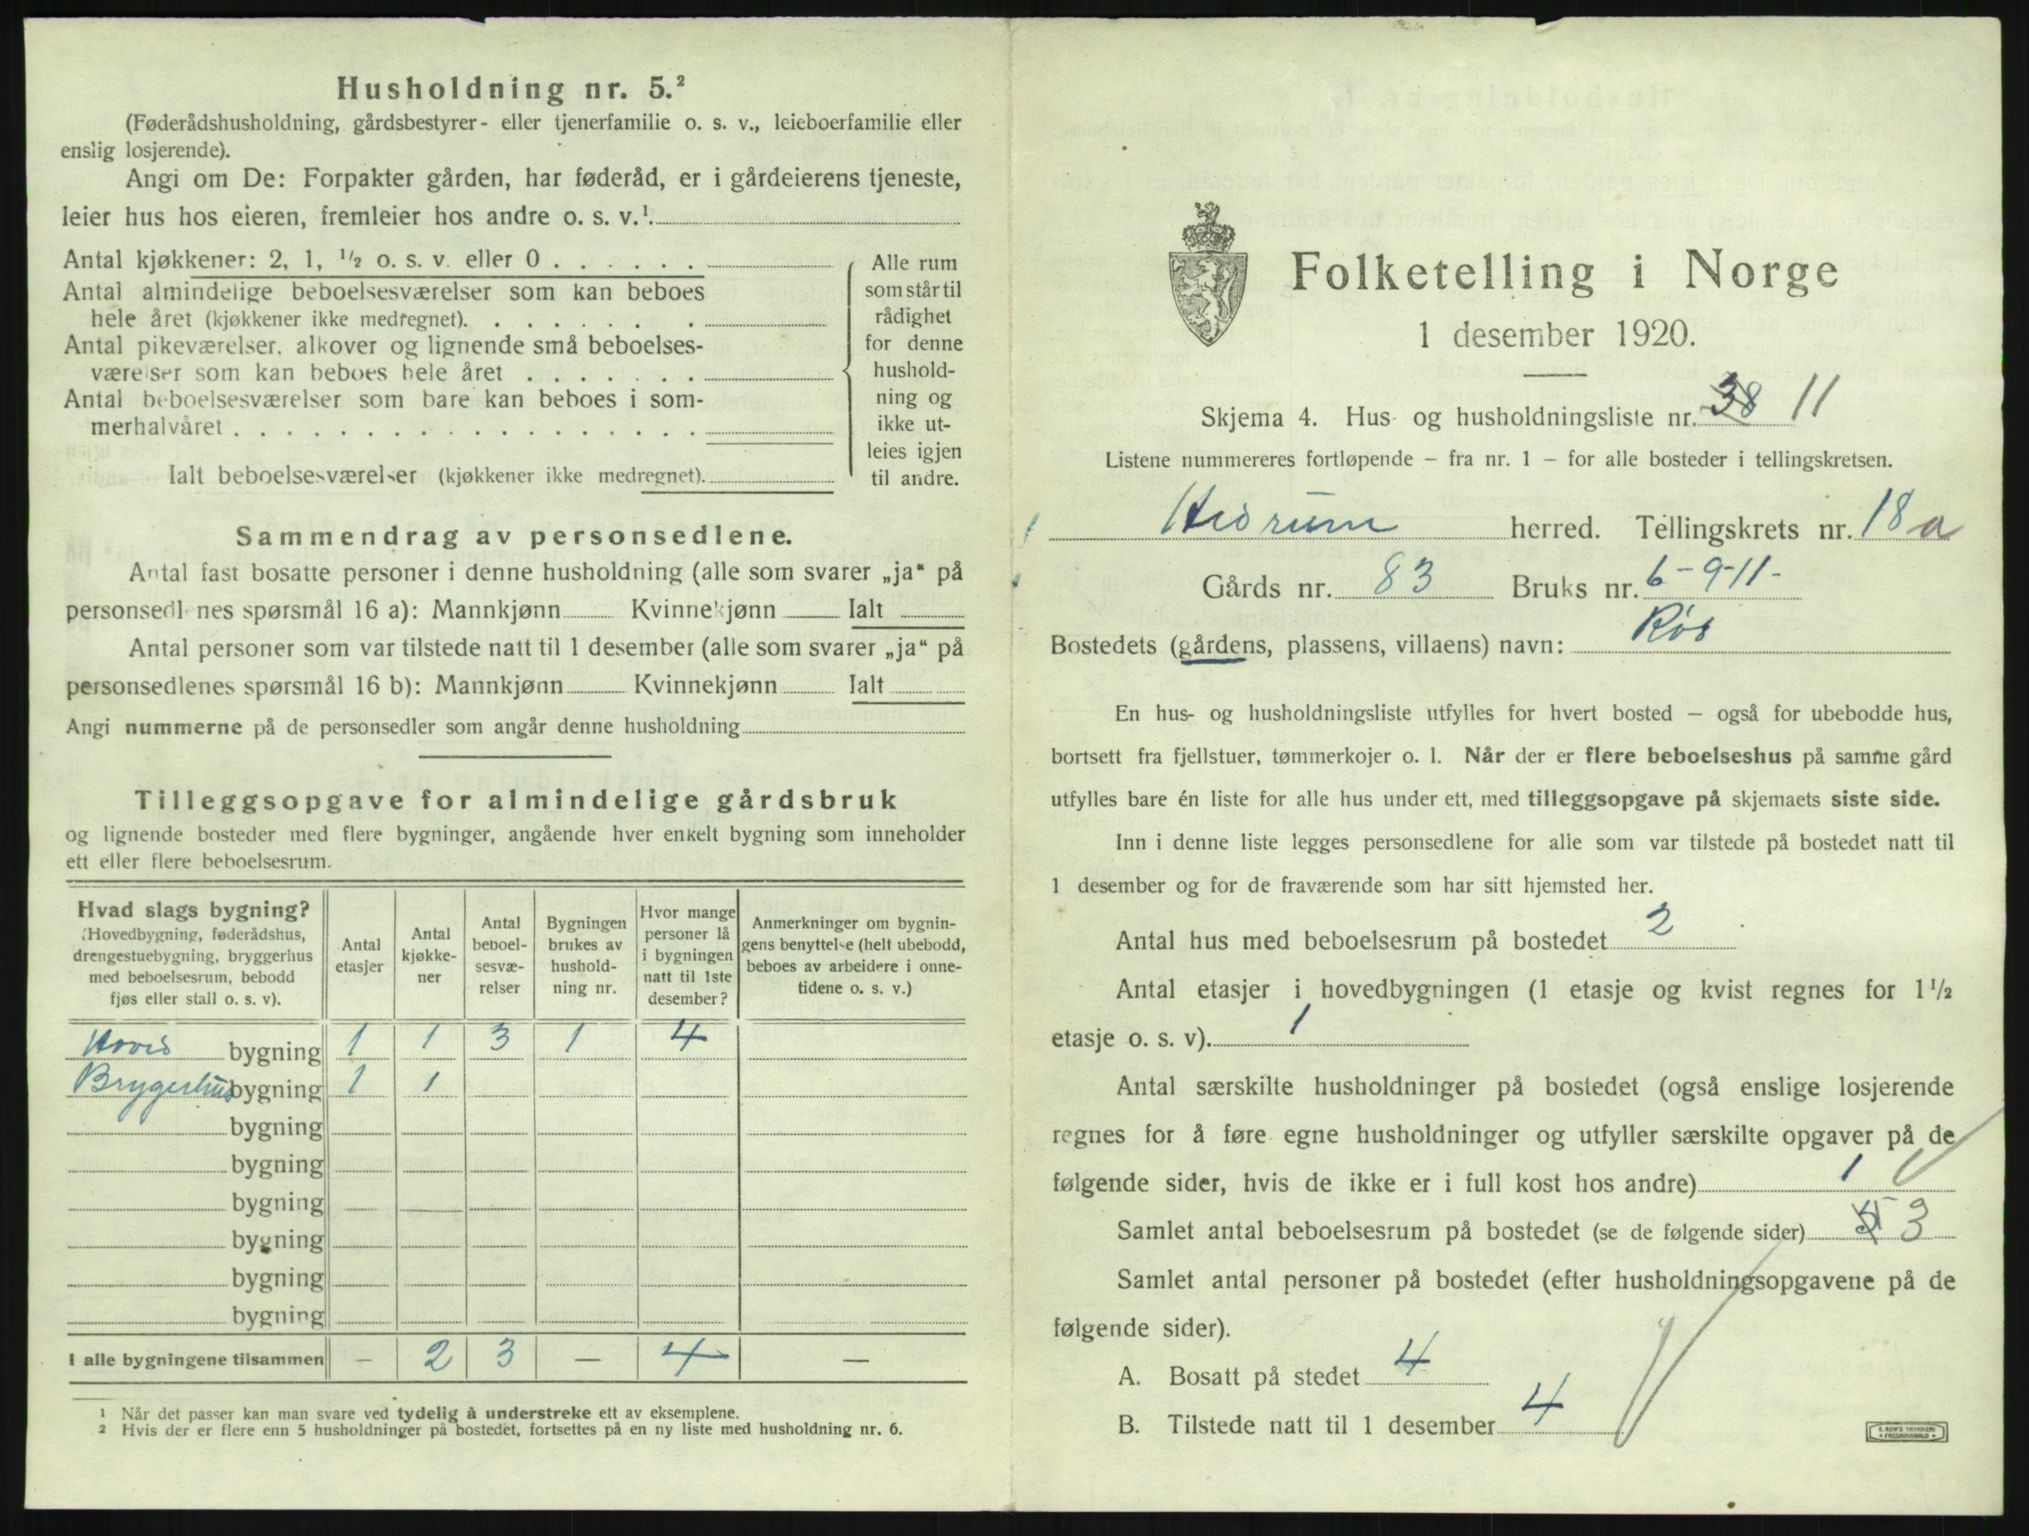 Husholdning nr. 5.²
(Føderådshusholdning, gårdsbestyrer- eller tjenerfamilie o. s. v., leieboerfamilie eller
enslig losjerende).
Angi om De: Forpakter gården, har føderåd, er i gårdeierens tjeneste,
leier hus hos eieren, fremleier hos andre o. s. v.¹
Antal kjøkkener: 2, 1, ½ o. s. v. eller 0
Antal almindelige beboelsesværelser som kan beboes
hele året (kjøkkener ikke medregnet).
Antal pikeværelser, alkover og lignende små beboelses-
værelser som kan beboes hele året
Antal beboelsesværelser som bare kan beboes i som-
merhalvåret
Ialt beboelsesværelser (kjøkkener ikke medregnet).
Alle rum
som står til
rådighet
for denne
hushold-
ning og
ikke ut-
leies igjen
til andre.
Sammendrag av personsedlene.
Antal fast bosatte personer i denne husholdning (alle som svarer „ja“ på
personsedlenes spørsmål 16 a): Mannkjønn Kvinnekjønn Ialt
Antal personer som var tilstede natt til 1 desember (alle som svarer „ja“ på
personsedlenes spørsmål 16 b): Mannkjønn Kvinnekjønn Ialt
Angi nummerne på de personsedler som angår denne husholdning
Tilleggsopgave for almindelige gårdsbruk
og lignende bosteder med flere bygninger, angående hver enkelt bygning som inneholder
ett eller flere beboelsesrum.
Hvad slags bygning?
(Hovedbygning, føderådshus,
drengestuebygning, bryggerhus
med beboelsesrum, bebodd
fjøs eller stall o. s. v).
Antal
etasjer
Antal
kjøkke-
ner
Antal
beboel-
sesvæ-
relser
Bygningen
brukes av
hushold-
ning nr.
Hvor mange
personer lå
i bygningen
natt til 1ste
desember?
Anmerkninger om bygnin-
gens benyttelse (helt ubebodd,
beboes av arbeidere i onne-
tidene o. s. v.)
Hoved bygning 1 1 3 1 4
Brygerhus bygning 1 1
bygning
bygning
bygning
bygning
bygning
bygning
I alle bygningene tilsammen — 2 3 — 4 —
¹ Når det passer kan man svare ved tydelig å understreke ett av eksemplene.
² Hvis der er flere enn 5 husholdninger på bostedet, fortsettes på en ny liste med husholdning nr. 6.
Folketelling i Norge
1 desember 1920.
Skjema 4. Hus- og husholdningsliste nr. 38 11
Listene nummereres fortløpende – fra nr. 1 – for alle bosteder i tellingskretsen.
Hedrum herred. Tellingskrets nr. 18 a
Gårds nr. 83 Bruks nr. 6-9-11-
Bostedets (gårdens, plassens, villaens) navn: Rös
En hus- og husholdningsliste utfylles for hvert bosted – også for ubebodde hus,
bortsett fra fjellstuer, tømmerkojer o. l. Når der er flere beboelseshus på samme gård
utfylles bare én liste for alle hus under ett, med tilleggsopgave på skjemaets siste side.
Inn i denne liste legges personsedlene for alle som var tilstede på bostedet natt til
1 desember og for de fraværende som har sitt hjemsted her.
Antal hus med beboelsesrum på bostedet 2
Antal etasjer i hovedbygningen (1 etasje og kvist regnes for 1½
etasje o. s. v). 1
Antal særskilte husholdninger på bostedet (også enslige losjerende
regnes for å føre egne husholdninger og utfyller særskilte opgaver på de
følgende sider, hvis de ikke er i full kost hos andre) 1
Samlet antal beboelsesrum på bostedet (se de følgende sider) 3
Samlet antal personer på bostedet (efter husholdningsopgavene på de
følgende sider).
A. Bosatt på stedet 4
B. Tilstede natt til 1 desember 4